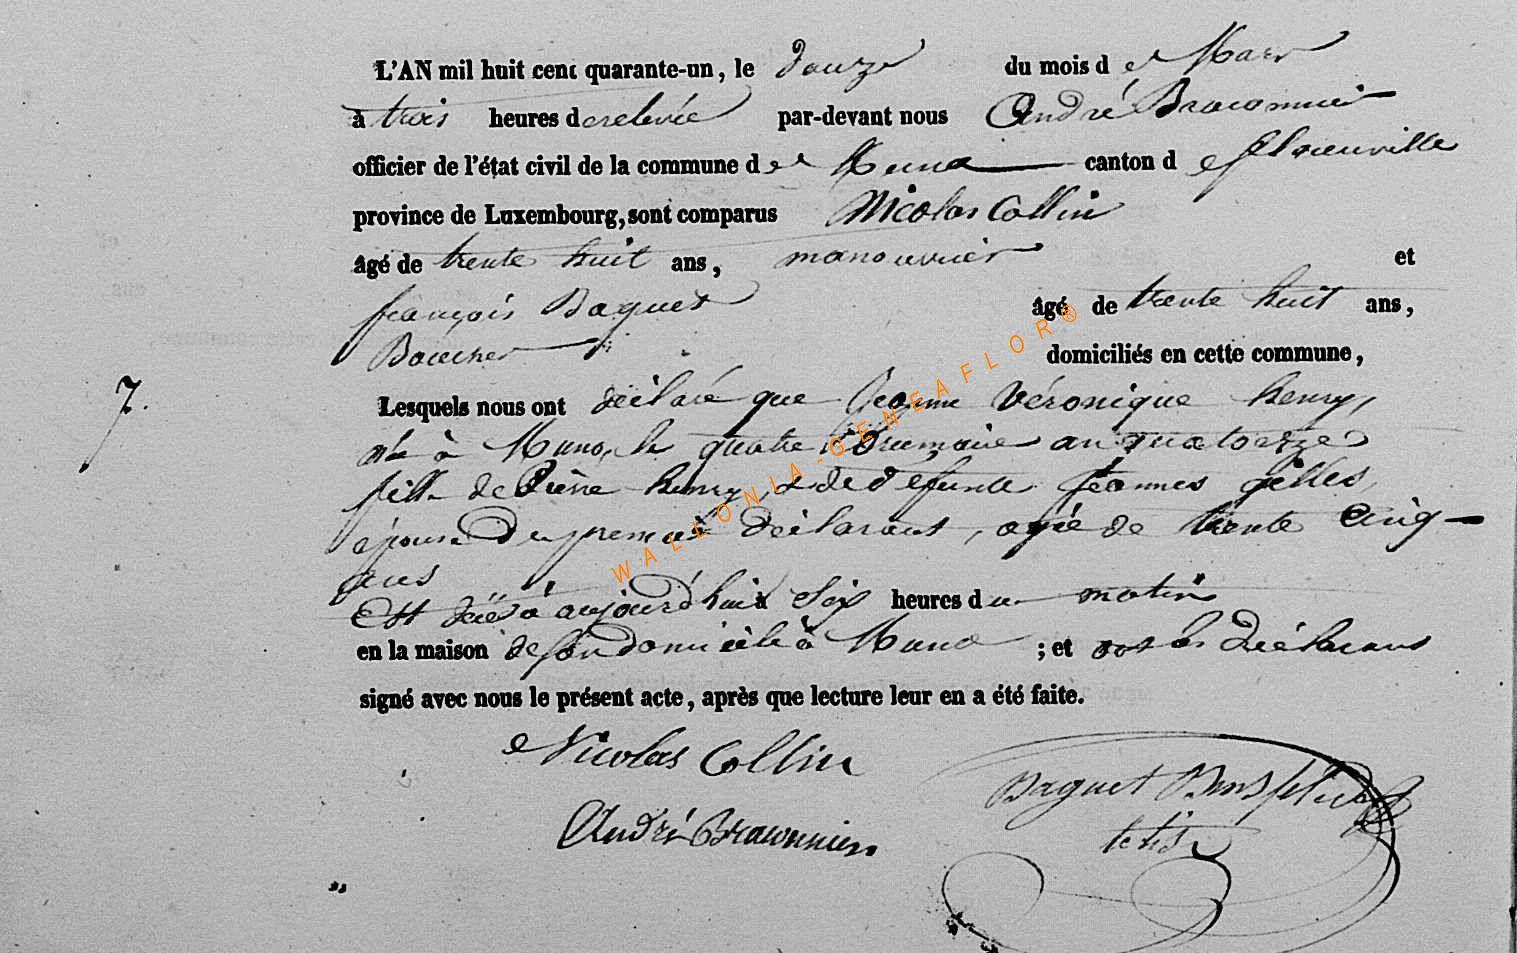 L'AN mil huit cent quarante-un, le douze du mois de Mars
à trois heures de relevée par-devant nous André Braconnier
officier de l'état civil de la commune de Muno canton de florenville
province de Luxembourg, sont comparus Nicolas Collin
âgé de trente huit ans, manouvrier et
françois Baquet âgé de trente huit ans,
Boucher domiciliés en cette commune,
7.
Lesquels nous ont déclaré que Jeanne Véronique henry,
née à Muno, le quatre Brumaire an quatorze
fille de Pierre henry, & de défunte Jeannes gilles,
épouse du premier déclarant, agée de trente Cinq
ans
Est décédé aujourd'hui à Six heures du matin
en la maison de son domicile à Muno ; et ont les déclarans
signé avec nous le présent acte, après que lecture leur en a été faite.
Nicolas Collin
Baquet
André Braconnier
WALLONIA-GENEAFLOR®